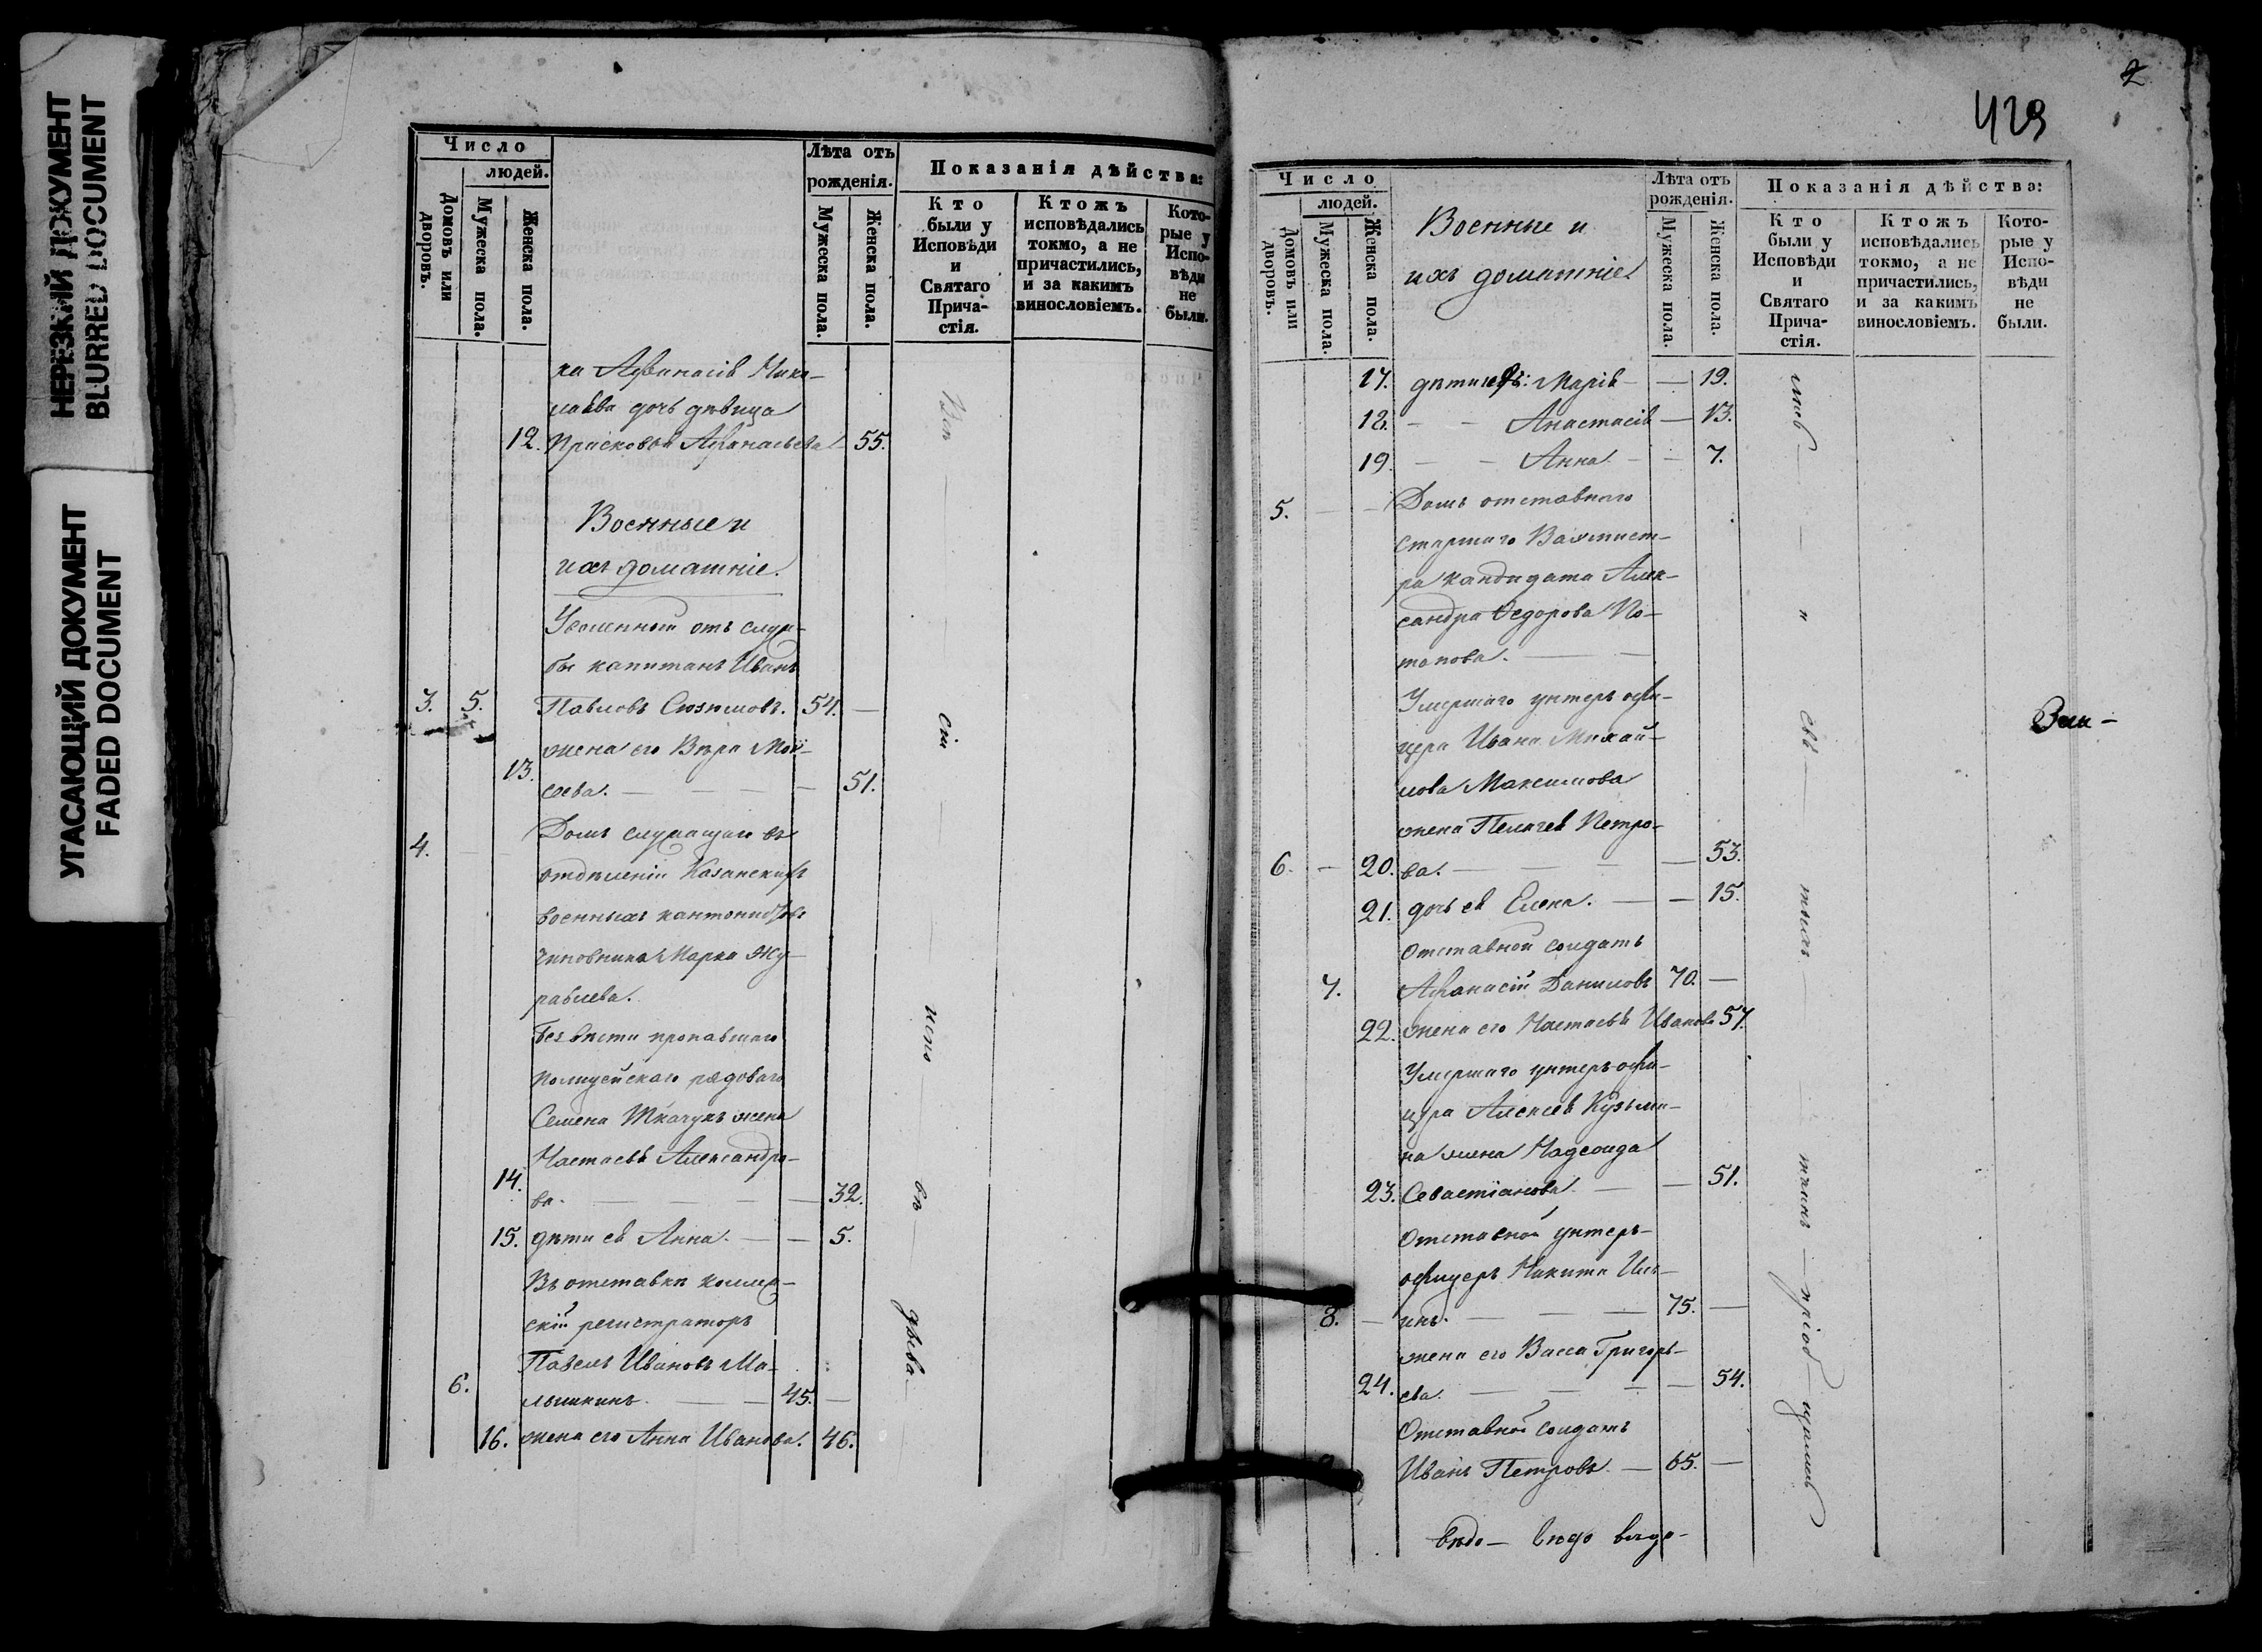 НЕРЕЗКИЙ ДОКУМЕНТ
BLURRED DOCUMENT
УГАСАЮЩИЙ ДОКУМЕНТ
FADED DOCUMENT
Число
людей.
Домовъ или дворовъ.
Мужеска пола.
Женска пола.
Лѣта отъ рожденія.
Мужеска пола.
Женска пола.
Показанія дѣйства:
Кто были у Исповѣди и Святаго Прича-стія.
Ктожъ исповѣдались токмо, а не причастились, и за какимъ винословіемъ.
Кото-рые у Испо-вѣди не были.
ка Афанасія Нико-
лаева дочь дѣвица
12. Прасковья Афанасьева 55.
Военные и
ихъ домашніе.
Уволенный отъ служ-
бы капитанъ Иванъ
3. 5. Павловъ 54. —
жена его Вѣра Мои-
13. сеева. — — — — 51.
4. Домъ служащаго въ
отдѣленіи Казанскихъ
военныхъ кантонистовъ
чиновника Марка Жу-
равлева.
Безвѣсти пропавшаго
полицейскаго рядоваго
Семена Ткачукъ жена
Настасья Александро-
14. ва. — — — — 32.
15. дѣти ея Анна. — — 5.
Въ отставкѣ
регистраторъ
Павелъ Ивановъ Ма-
6. лышкинъ. — — 45. —
16. жена его Анна Иванова. 46.
испо
вѣ
2
429
Число
людей.
Домовъ или дворовъ.
Мужеска пола.
Женска пола.
Военные и
ихъ домашніе
Лѣта отъ рожденія.
Мужеска пола.
Женска пола.
Показанія дѣйства:
Кто были у Исповѣди и Святаго Прича-стія.
Ктожъ исповѣдались токмо, а не причастились, и за какимъ винословіемъ.
Кото-рые у Испо-вѣди не были.
17. Марія — — 19.
18. — — Анастасія — 13.
19. — — Анна. — — 7.
5. — — Домъ отставнаго
старшаго Вахмист-
ра кандидата Алек-
сандра Ѳедорова По-
тапова. — —
Умершаго унтеръ офи-
цера Ивана Михай-
лова Максимова
жена Пелагея Петро-
6. — 20. ва. — — — — 53.
21. дочь ея Елена. — — 15.
Отставной солдатъ
7. Афанасій Даниловъ 70. —
22. жена его Настасья Иванова 57.
Умершаго унтеръ-офи-
цера Алексея Кузьми-
на жена Надежда
23. Севастіанова. — — 51.
Отставной унтеръ-
офицеръ Никита Иль-
8. — инъ. — — — 75. —
жена его Васса Григорь-
24. ева. — — — — 54.
Отставной солдатъ
Иванъ Петровъ. — 65. —
и